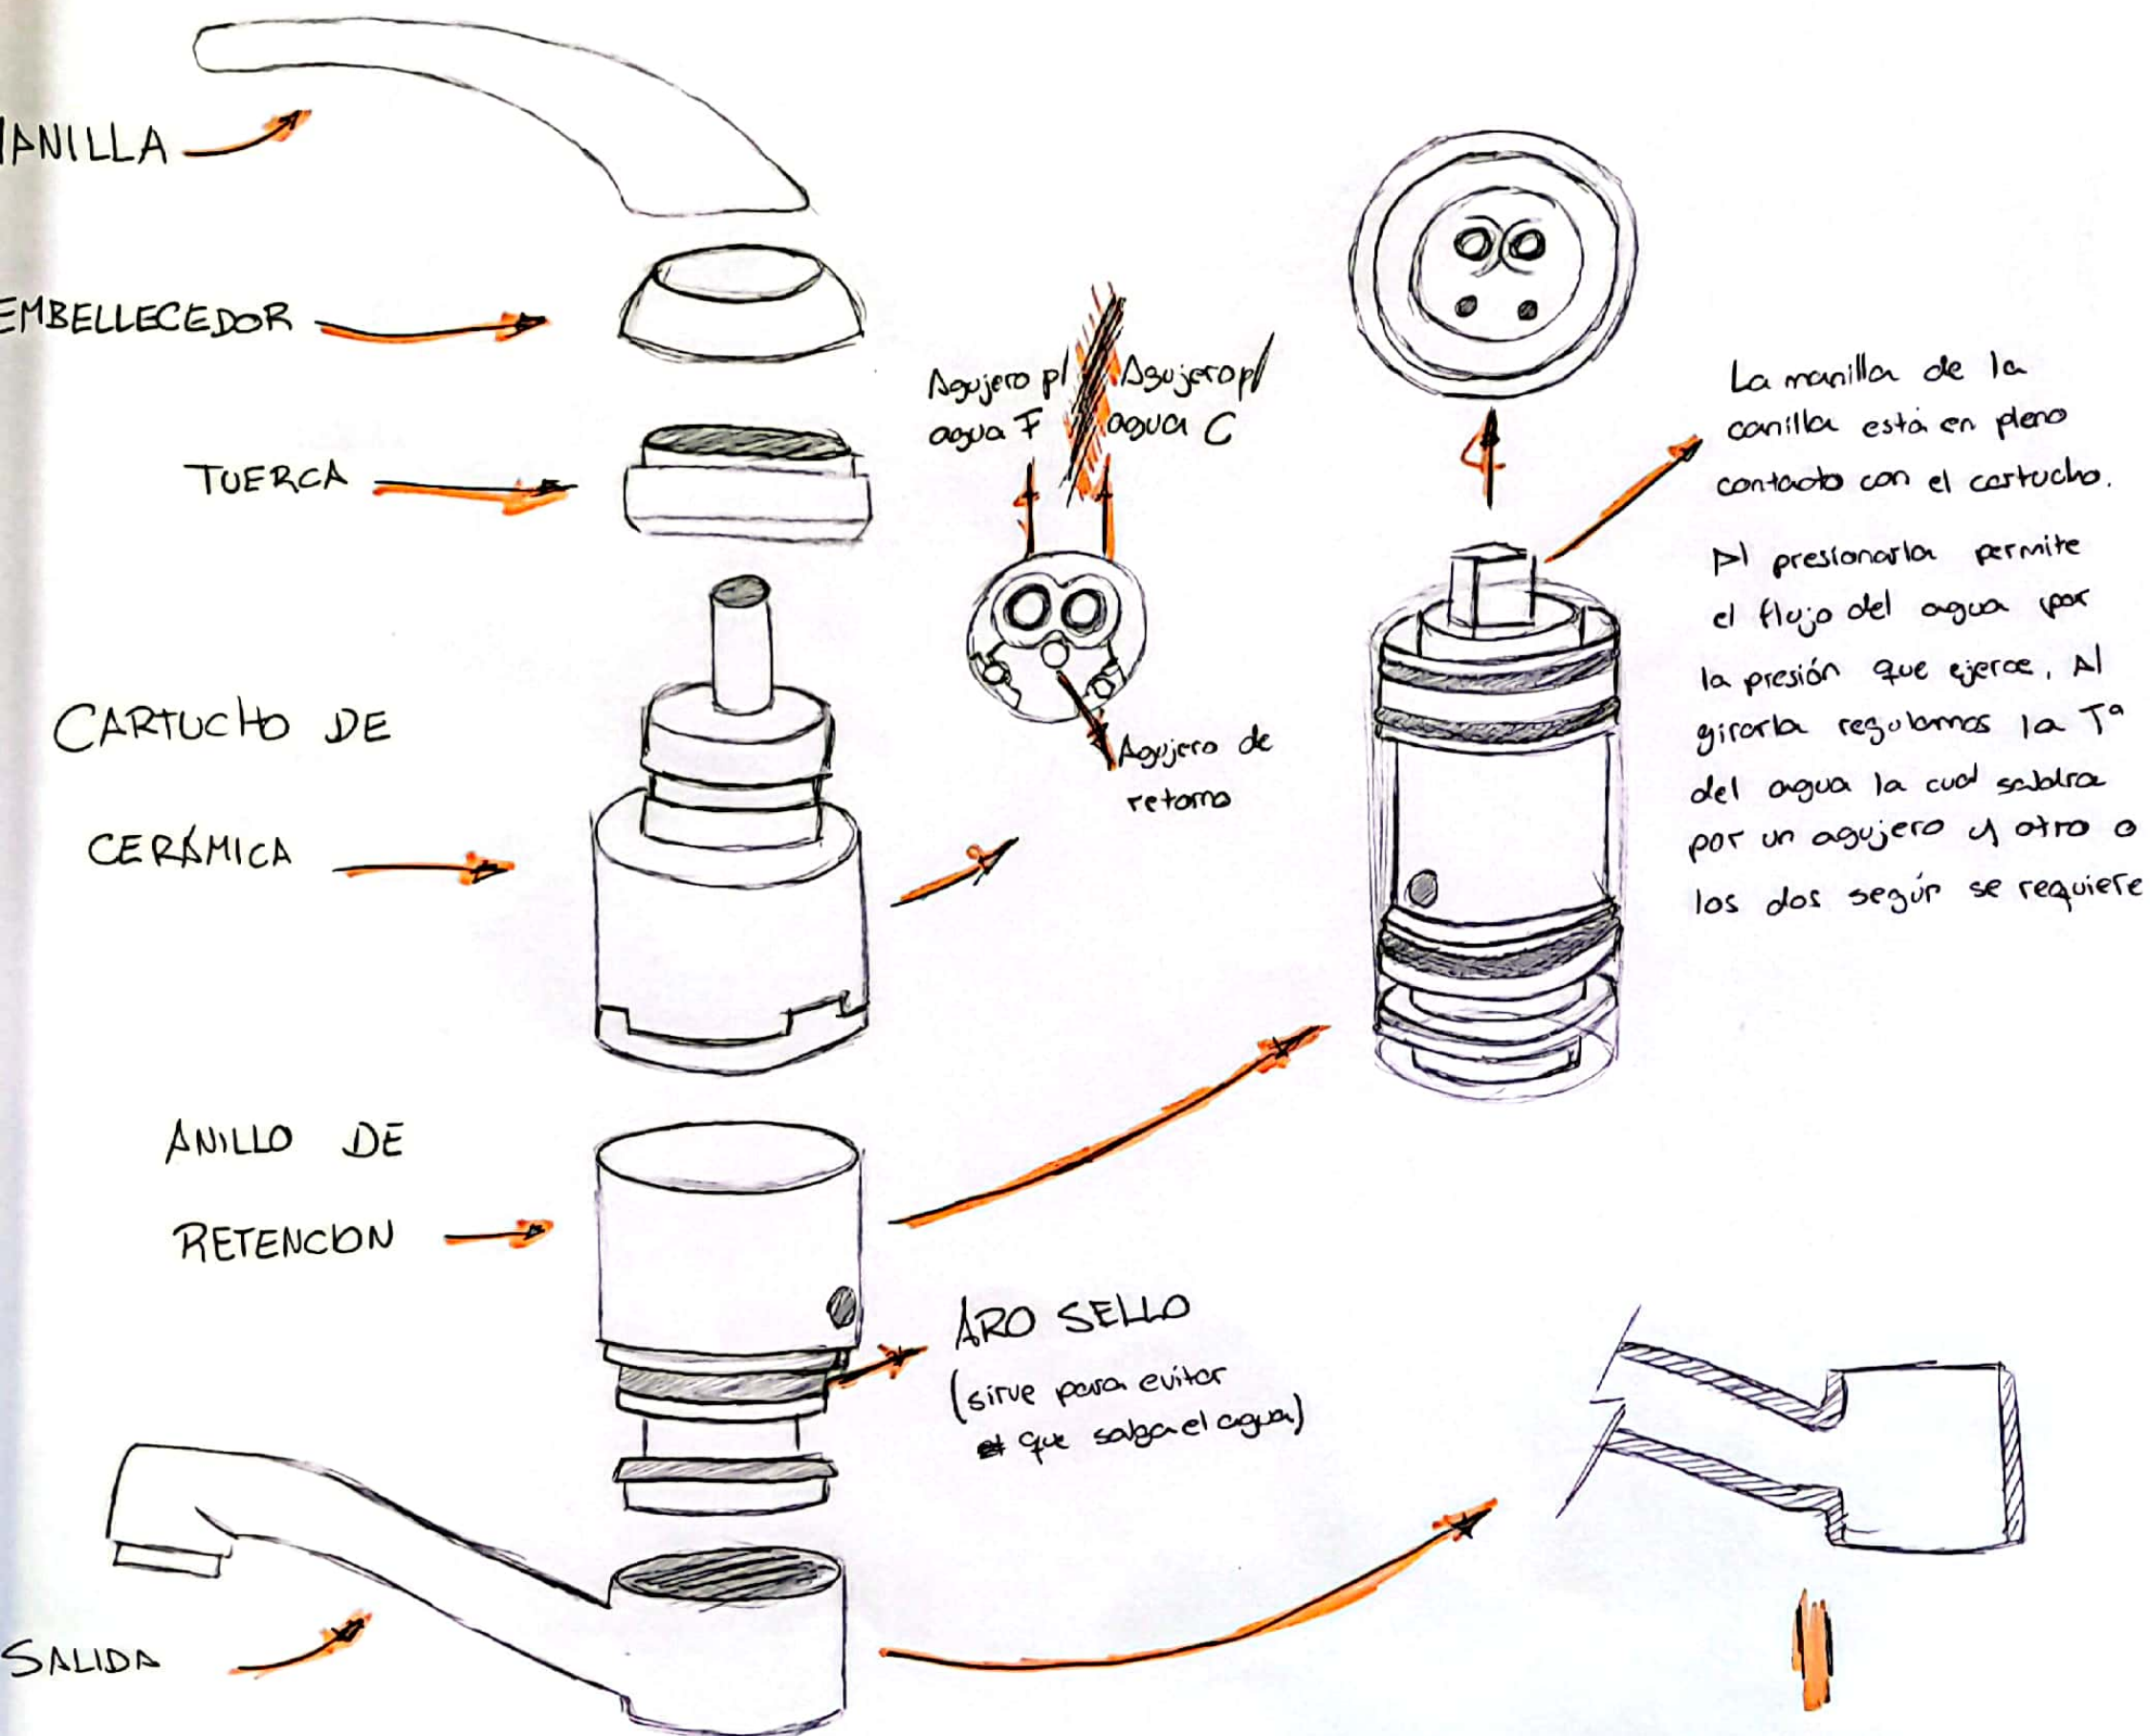 MANILLA
EMBELLECEDOR
TUERCA
CARTUCHO DE
CERÁMICA
ANILLO DE
RETENCION
SALIDA
Agujero p/
agua F
Agujero p/
agua C
Agujero de
retorno
ARO SELLO
(sirve para evitar
que salga el agua)
La manilla de la
canilla está en pleno
contacto con el cartucho.
Al presionarla permite
el flujo del agua por
la presión que ejerce. Al
girarla regulamos la Tª
del agua la cual saldra
por un agujero y otro o
los dos según se requiere